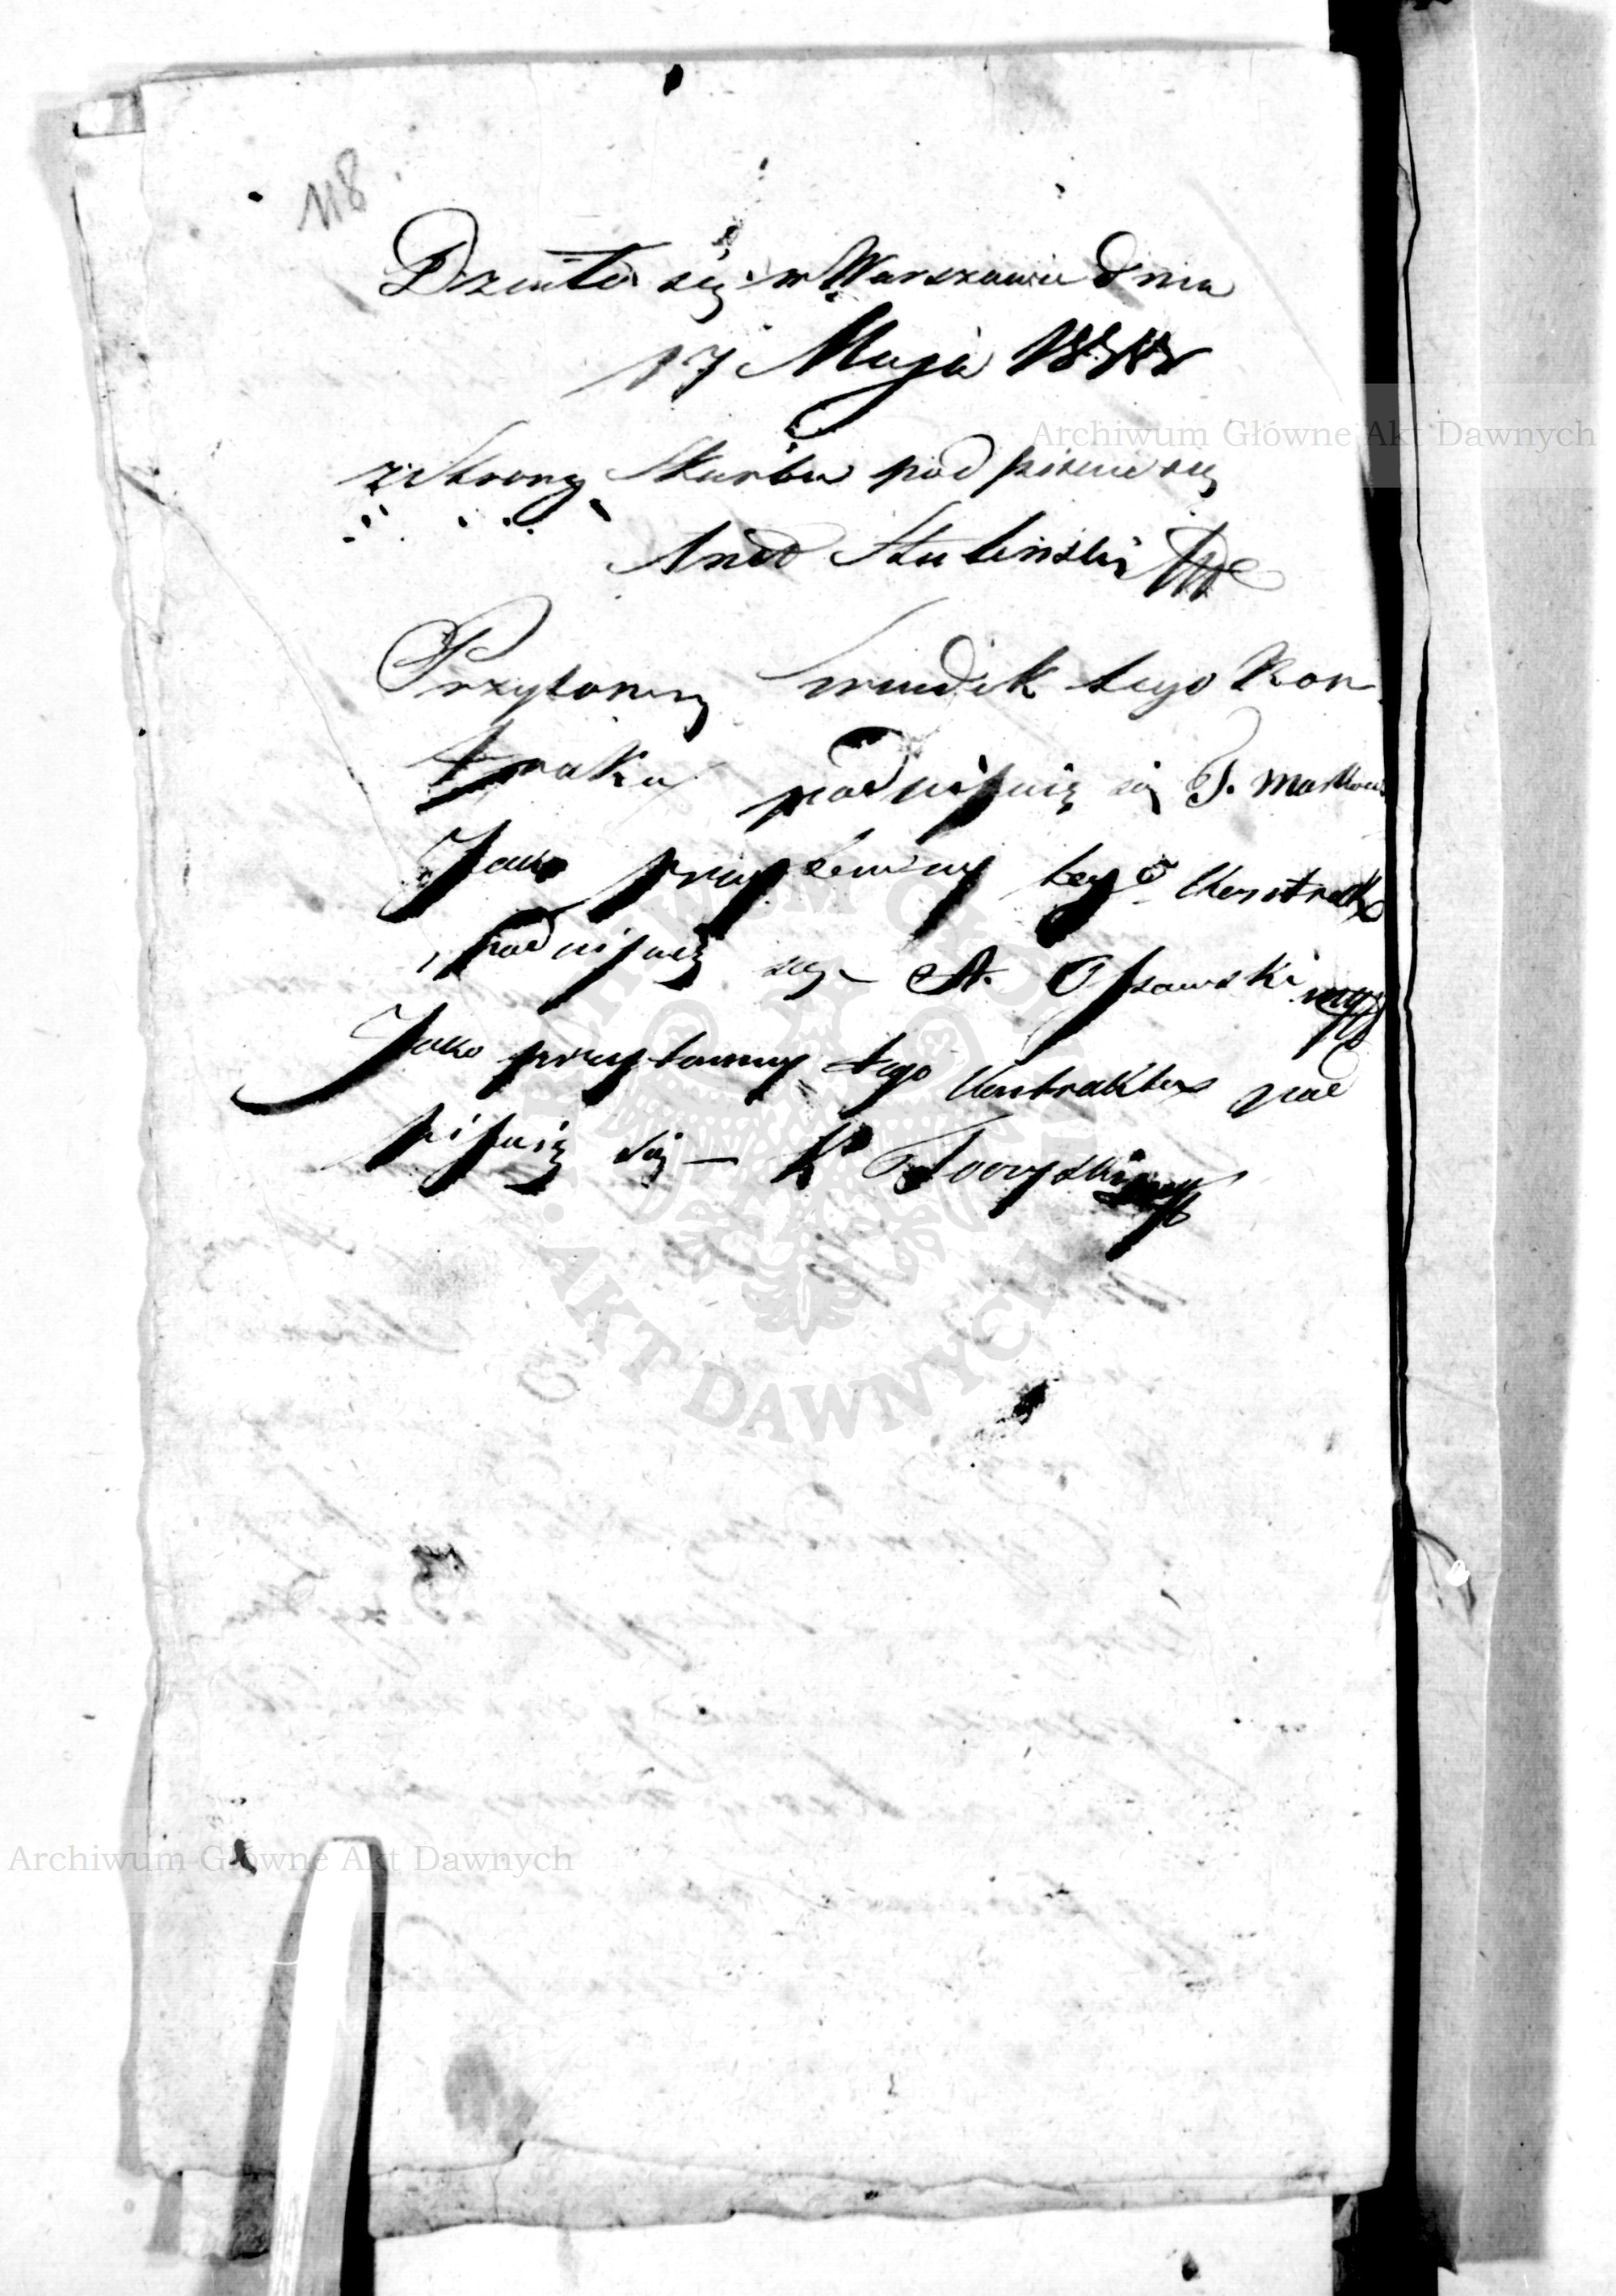 118
Działo się w Warszawie dnia
17 Maja
ze strony Skarbu pod pisuie się
And
Przytomny świadek tego Kon
traktu podpisuię się J.
Jako przytomny tego Kontraktu
podpisuię się A.
Jako przytomny tego Kontraktu pod
pisuię się — K
Archiwum Główne Akt Dawnych
ARCHIWUM GŁÓWNE AKT DAWNYCH
Archiwum Główne Akt Dawnych